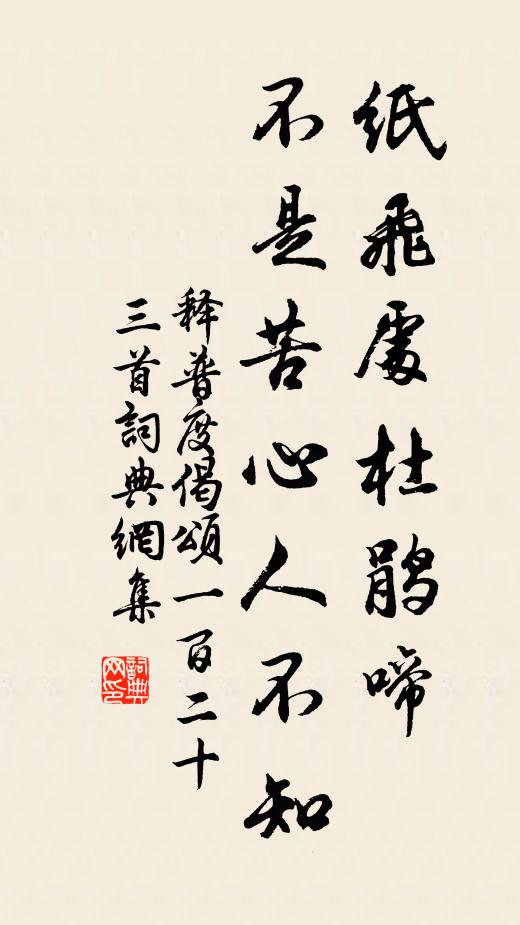 紙飛處杜鵑啼
不是苦心人不知
释普度偈頌一百二十
三首詞典網集
詞典網印